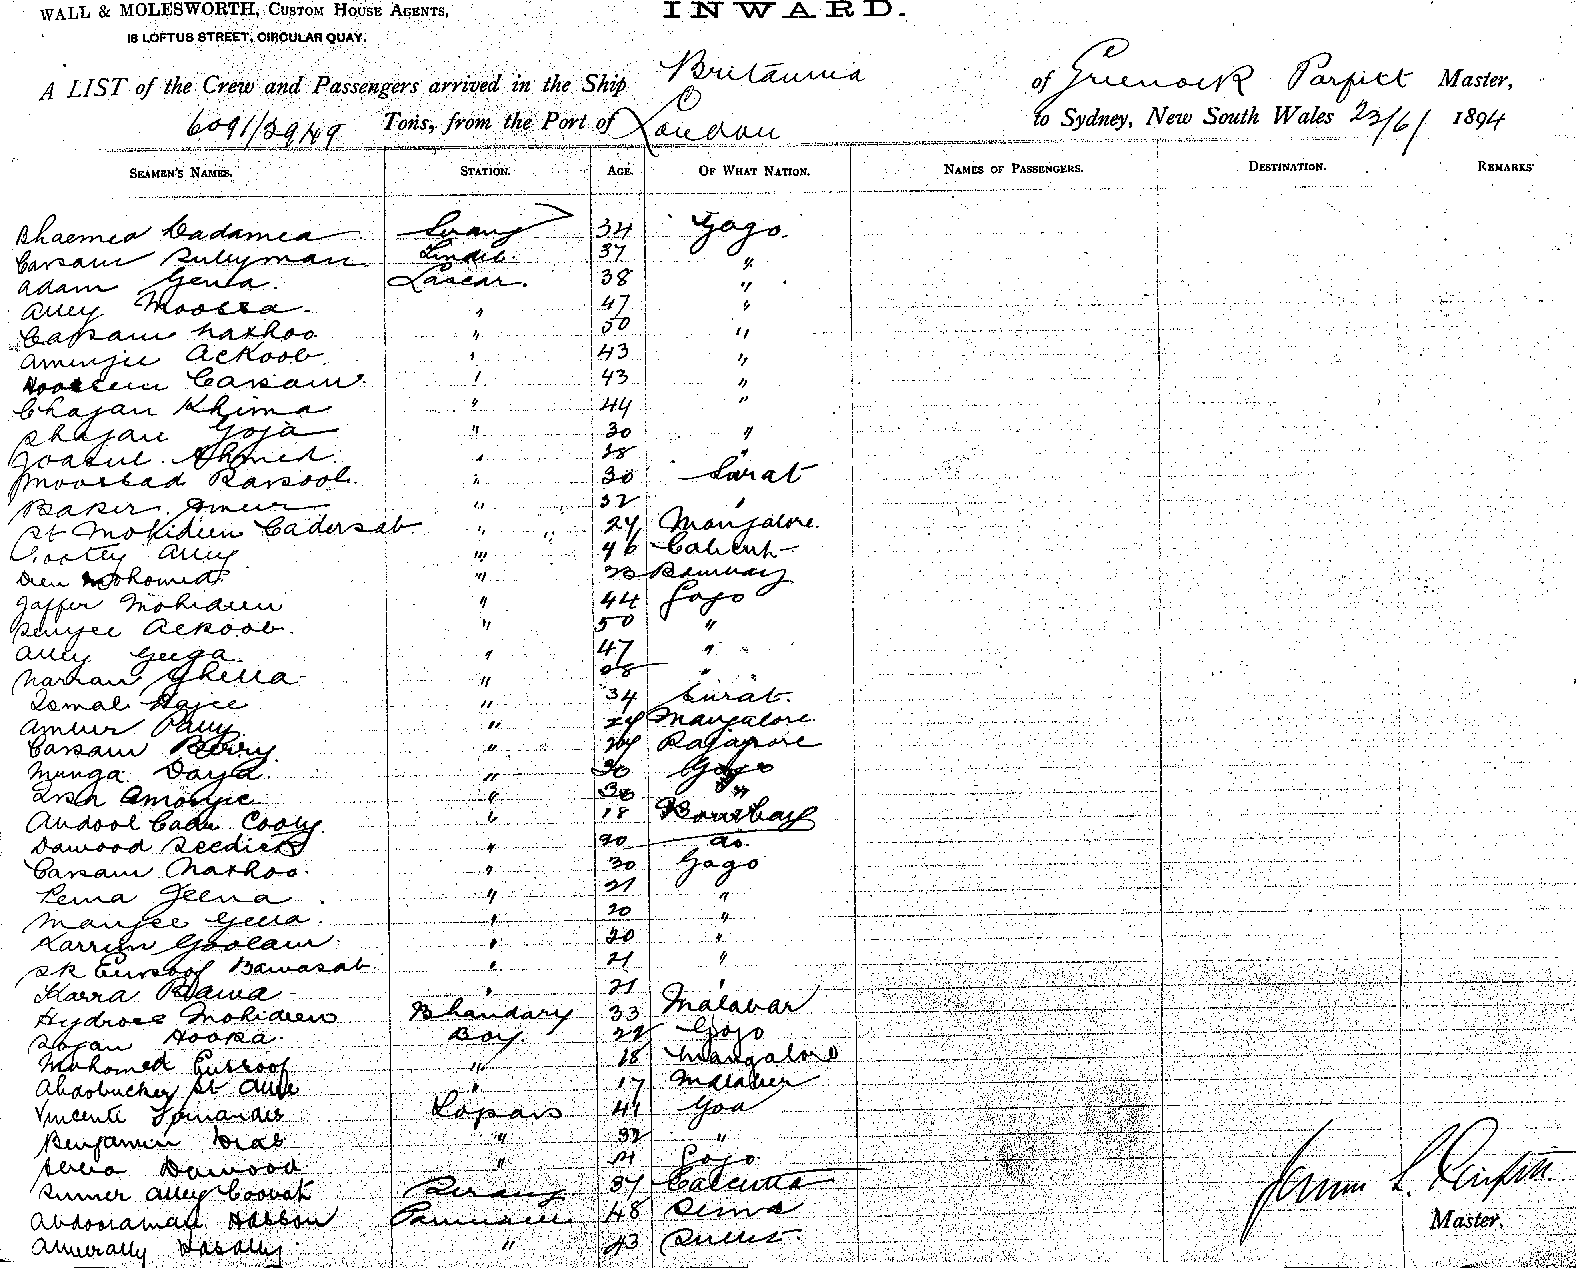 WALL & MOLESWORTH, CUSTOM HOUSE AGENTS,
INWARD.
18 LOFTUS STREET, CIRCULAR QUAY.
A LIST of the Crew and Passengers arrived in the Ship Britannia of Greenock Parfitt Master,
6091/3949 Tons, from the Port of London to Sydney, New South Wales 23/6/ 1894
SEAMEN'S NAMES. STATION. AGE. OF WHAT NATION. NAMES OF PASSENGERS. DESTINATION. REMARKS
Bhaemea Dadamea Serang 34 Gogo.
Carsam Suleyman Tindel. 37 "
Adam Gena. Lascar. 38 "
Alley Moossa. " 47 "
Carsam Nathoo " 50 "
Amenjee Ackoob " 43 "
Hoossein Carsam. 43 "
Chajan Khima " 44 "
Shajan Goja " 30 "
Ahmed. " 28 "
Ransool. " 30 Surat
Baker Ameer " 32 "
St Mohideen Cadersab " 24 Mangalore.
Alley " 46 Calicut
Dien Mohomed " 23 Bombay
Jaffer Mohideen " 44 Gogo
Ackoob. " 50 "
Alley Geega. " 47 "
Narran " 28 "
Ismal Hajee " 34 Surat.
Amber " 24 Mangalore.
Carsam " 24 Rajapore
Munga Daya. " 30 Gogo
Amorjee " 30 "
Abdool Cader Cooty. " 18 Bombay
Dawood Seedick " 20 do.
Carsam Nathoo. " 30 Gogo
Pema Jeena. " 21 "
Manjee Gena. " 20 "
Karrim Goolam " 20 "
Sk Eusoof Bawasab. " 21 "
Karra Bawa " 21 "
Hydroos Mohideen Bhandary 33 Malabar
Hoosa. Boy. 22 Gogo
Mohomed Eussoof " 18 Mangalore
Abdobucker St " 17 Malaber
Vincente Fernandes Topass 41 Goa
Benjamin Dias " 32 "
Dawood " 21 Gogo.
Alley Serang 37 Calcutta
Abdooraman Hasson 48
Amerally Hasally. " 43
Master.